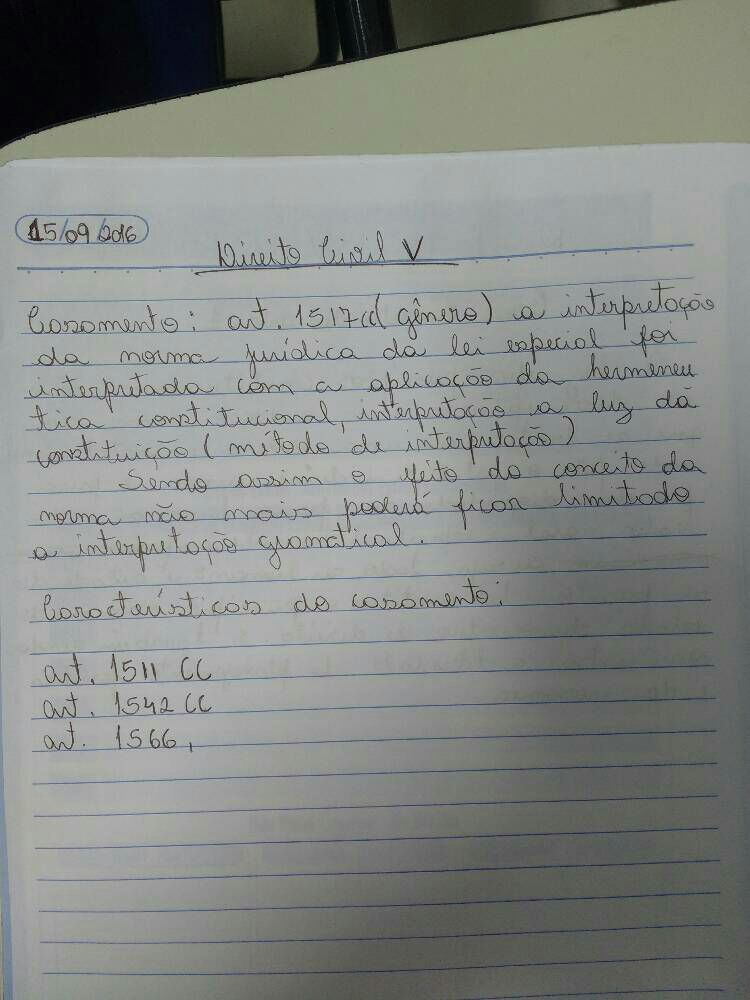 15/09/2016
Direito Civil V
Casamento: art. 1517 cc (gênero) a interpretação
da norma jurídica da lei especial foi
interpretada com a aplicação da hermeneu
tica constitucional, interpretação a luz da
constituição (método de interpretação)
Sendo assim o efeito do conceito da
norma não mais poderá ficar limitado
a interpretação gramatical.
Características do casamento:
art. 1511 CC
art. 1542 CC
art. 1566,